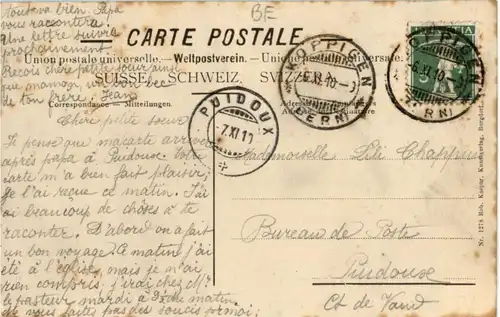 Tout va bien. Papa
vous racontera!
Une lettre suivra
prochainement.
Reçois chère petite sœur ainsi
que maman, un bec
de ton frère, Jean
BE
CARTE POSTALE.
Union postale universelle. — Weltpostverein. — Unione postale universale.
SUISSE. SCHWEIZ. SVIZZERA
Correspondance — Mitteilungen.
KOPPIGEN
6.XI.10
(BERN)
KOPPIGEN
6.XI.10
(BERN)
HELVETIA
PUIDOUX
7.XI.10
Chère petite sœur
Je pense que ma carte arrivera
après papa à Puidoux. Votre
carte m'a bien fait plaisir;
je l'ai reçue ce matin. J'ai
ai beaucoup de choses à te
raconter. D'abord on a fait
un bon voyage. Ce matin j'ai
été à l'église, mais je n'ai
rien compris; j'irai chez Mr
le pasteur mardi à matin.
ne vous faites pas des soucis p. moi;
Mademoiselle Lili Chappuis
Bureau de Poste
Puidoux
Ct de Vaud
Nr. 1278 Rob. Kaspar, Kunstverlag, Burgdorf.